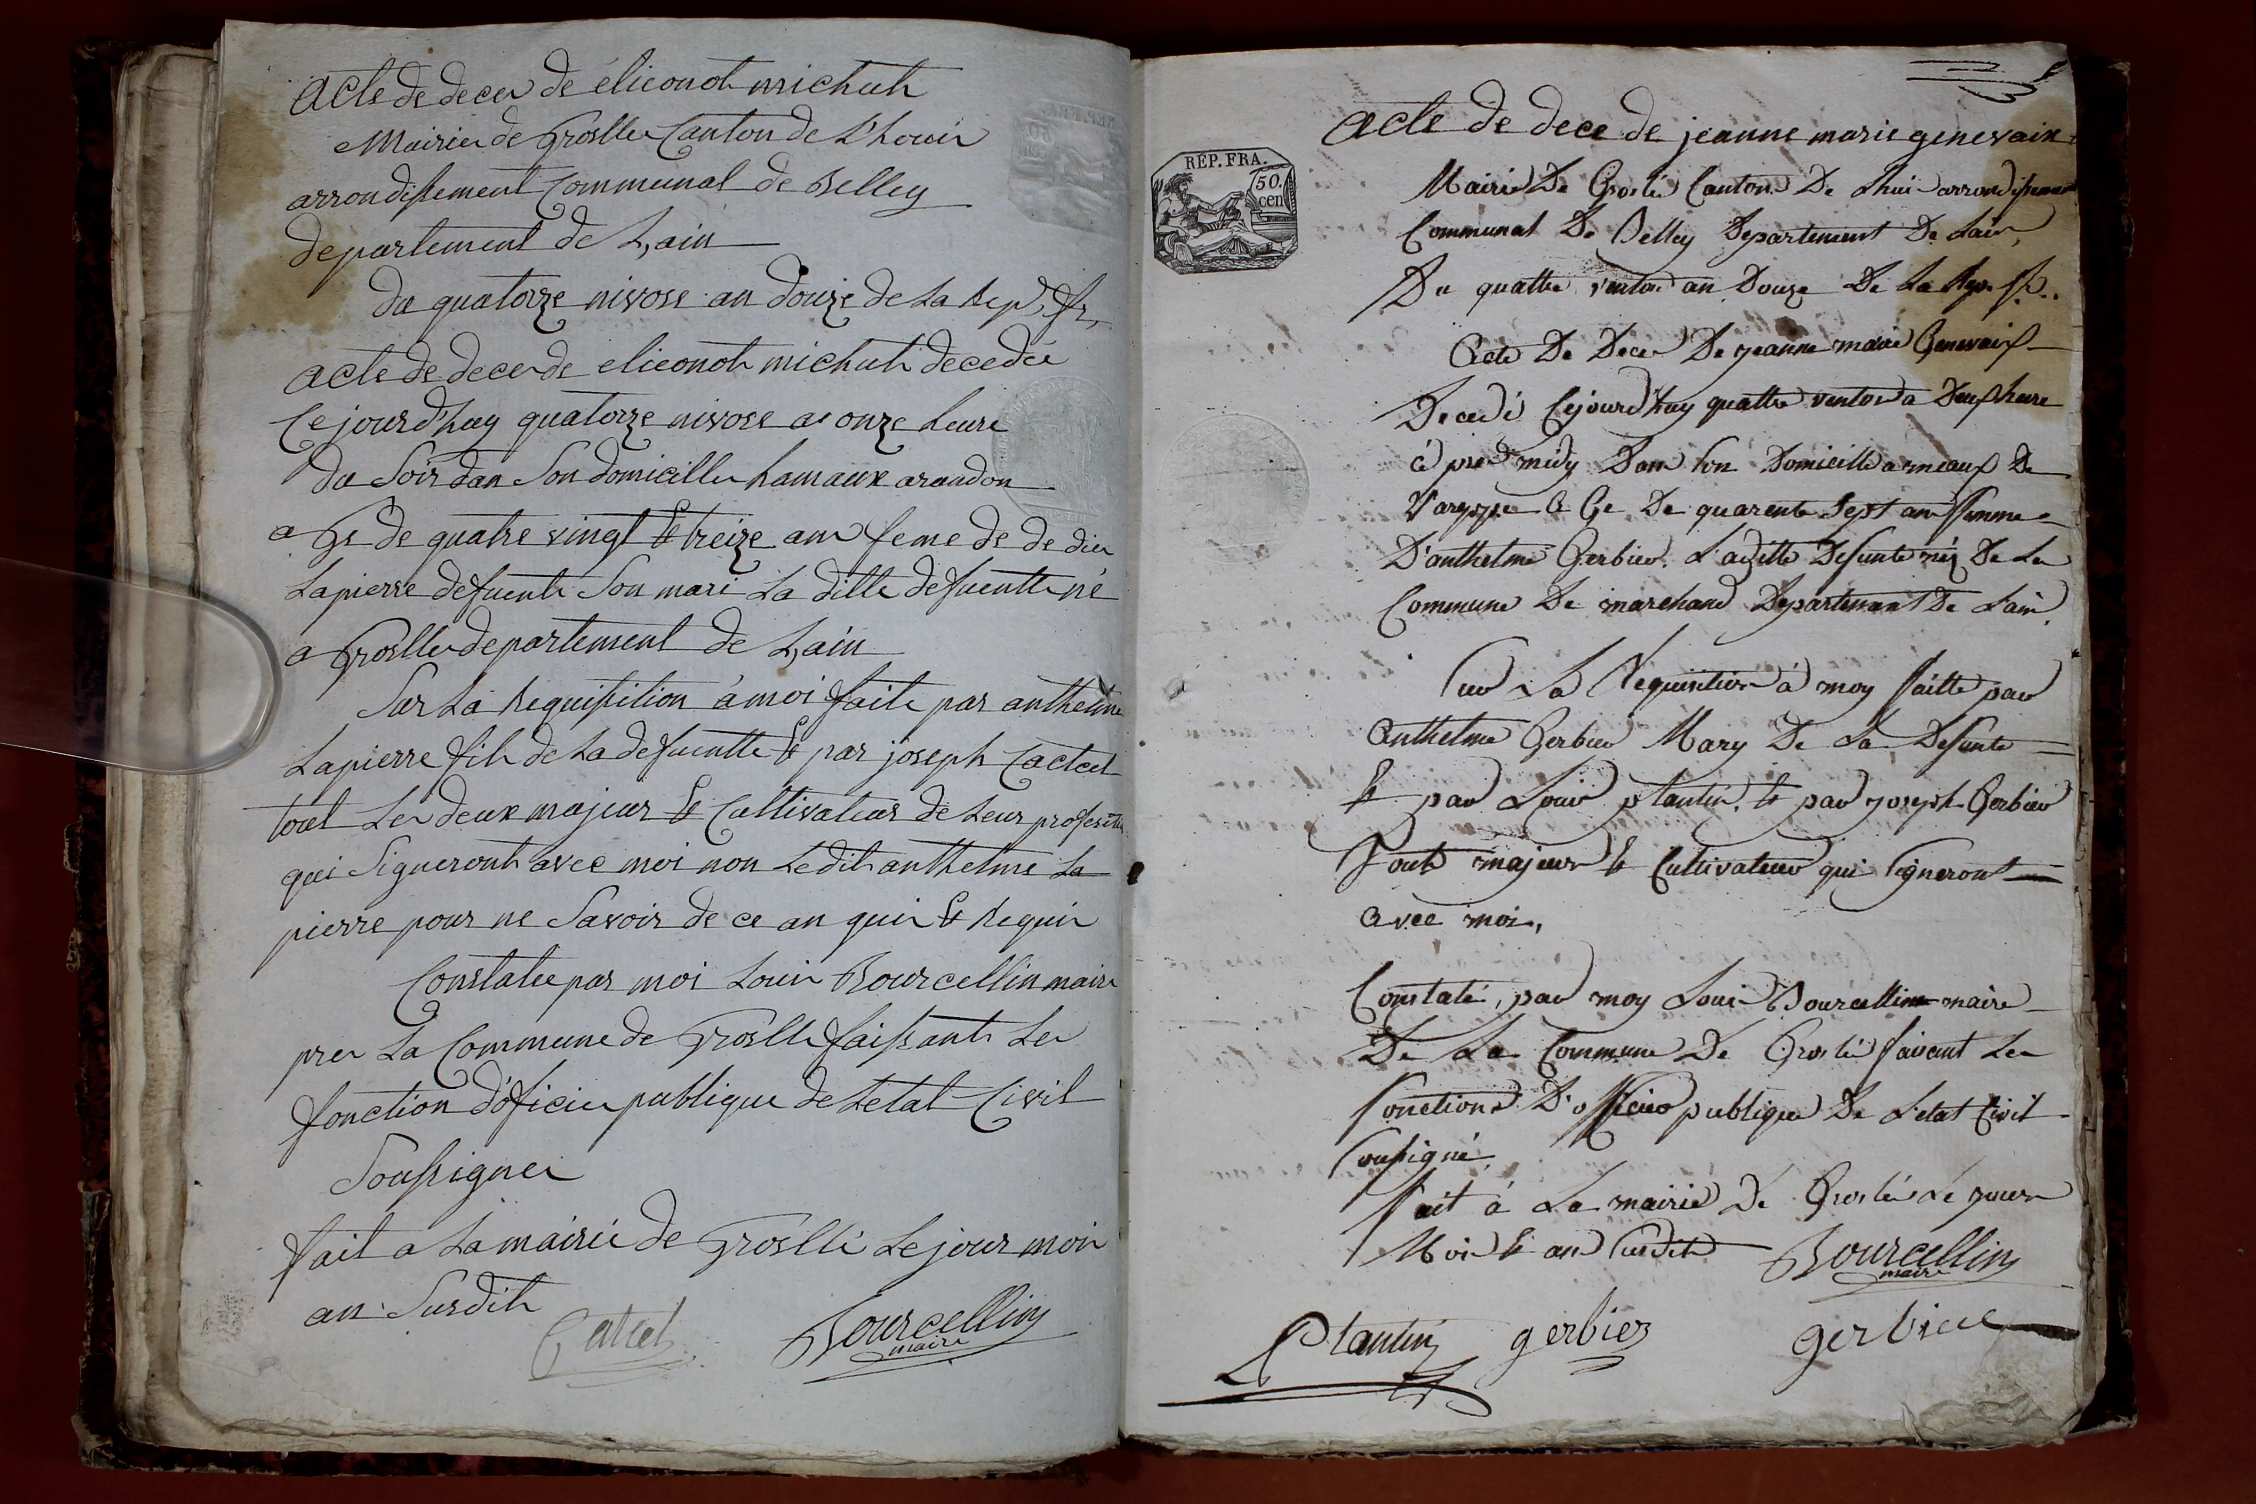 acte de deces de élieonot michut
Mairie de Groslle Canton de L'houis
arrondissement Communal de Belley
departement de L,ain
du quatorze nivose an douze de La Rep. fr,
acte de deces de elieonot michut decedée
Ce jourd'huy quatorze nivose a onze heure
du Soir dan Son domicille hamaux arandon
a Ge de quatre vingt & treize ans feme de de dieu
Lapierre defuent Son mari La ditte defuentte né
a Groslle departement de L,ain
Sur La Requisition à moi faite par anthelme
Lapierre fils de La defuentte & par joseph Catcel
tout Les deux majeur & Cultivateur de Leur profession
qui Signeront avec moi non Ledit anthelme La
pierre pour ne Savoir de ce an quis & Requis
Constatée par moi Louis Bourcellin maire
pres La Commune de Groslle faissant Les
fonction d'oficier publique de Letat Civil
Soussigner
fait a La mairie de Groslle Le jour mois
an Susdit
Catcel Bourcellin
maire
acte de dece de jeanne marie genevaix
REP. FRA.
50.
cen
Mairie De Groslé Canton De Lhuis arrondissement
Communal De Belley Departement De Lain,
Du quattre ventose an Douze De La Rep. fr.
Acte De Deces De jeanne marie Genevaix
Decedé Cejourd'huy quattre ventose a Deux heure
à pres midy Dans son Domicille armeaux De
Vareppe A Ge De quarente Sept ans femme
D'anthelme Gerbier. Laditte Defunte néz De La
Commune De marchand Departemant De Lain.
Sur La Requisition à moy faitte par
Anthelme Gerbier Mary De La Defunte
& par Louis plantin, & par joseph Gerbier
Touts majeurs & Cultivateur qui signeront
avec moi,
Constaté, par moy Louis Bourcellin maire
De La Commune De Groslé faisant Les
fonctions D'officier publique De L'etat Civil
Soussigné,
fait à La mairie De Groslé Le jour
Mois & an susdit Bourcellin
maire
Plantin gerbier gerbier